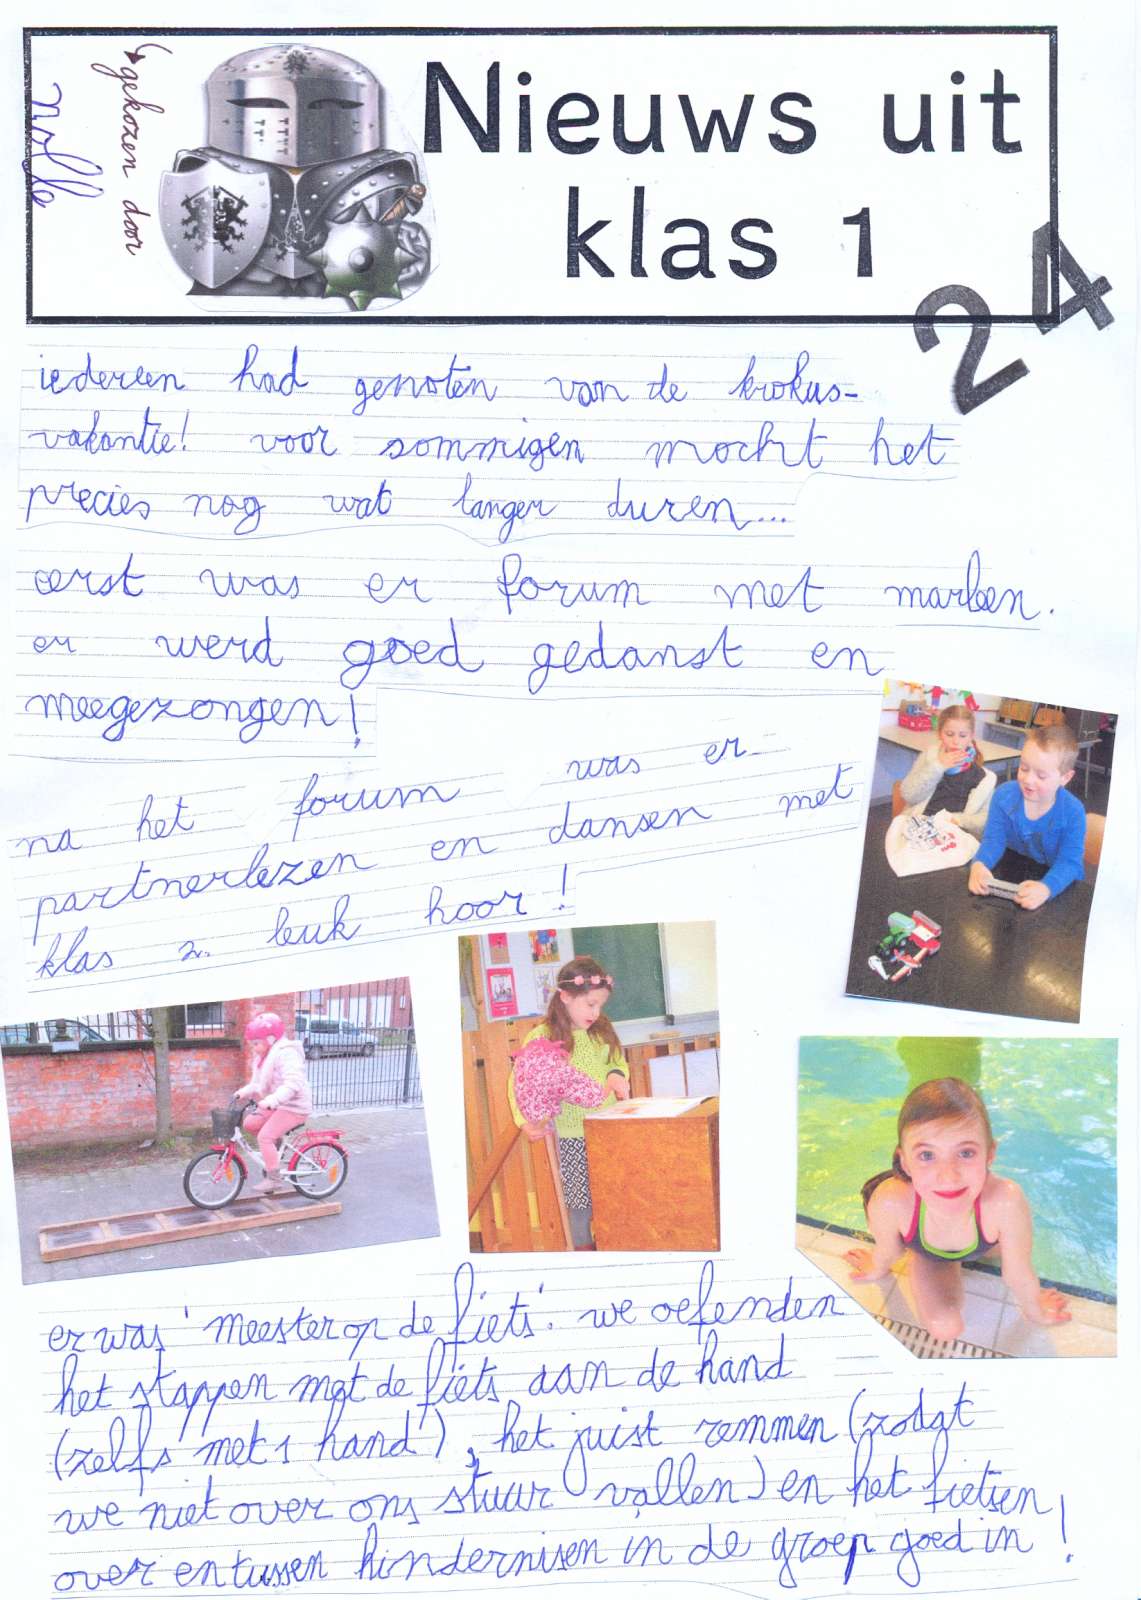 Nieuws uit
klas 1
24
gekozen door
iedereen had genoten van de krokus-
vakantie! voor sommigen mocht het
precies nog wat langer duren...
eerst was er forum met marleen.
er werd goed gedanst en
meegezongen!
na het forum was er
partnerlezen en dansen met
klas 2. leuk hoor!
er was 'meester op de fiets'. we oefenden
het stappen met de fiets aan de hand
(zelfs met 1 hand), het juist remmen (zodat
we niet over ons stuur vallen) en het fietsen
over en tussen hindernissen in de groep goed in!